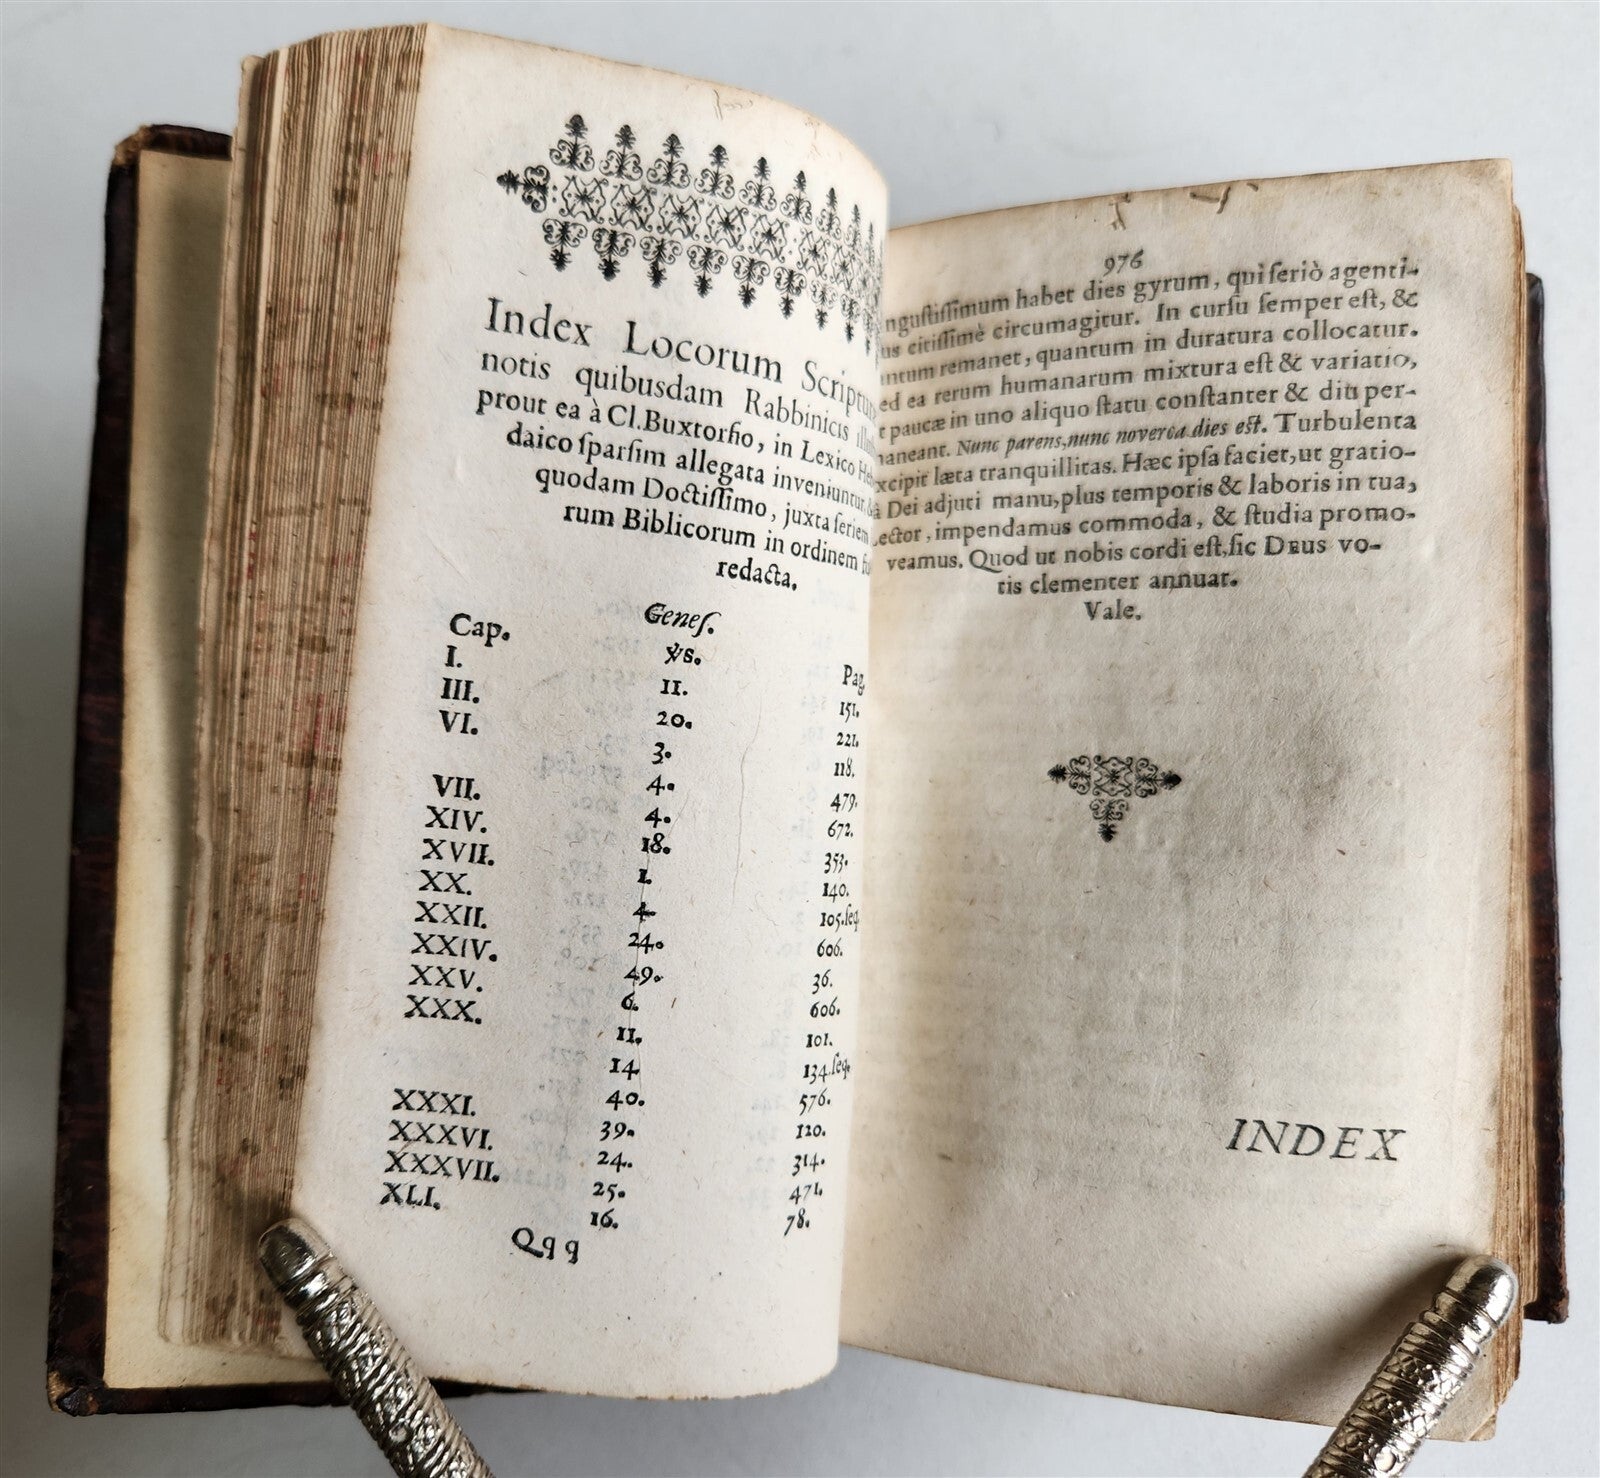 Index Locorum
notis quibusdam Rabbinicis
prout ea à Cl. Buxtorfio, in Lexico
daico ſparſim allegata inveniuntur,
quodam Doctiſſimo, juxta ſeriem
rum Biblicorum in ordinem
redacta.
Geneſ.
Cap. vs. Pag.
I. 11. 151.
III. 20. 221.
VI. 3. 118.
4. 479.
VII. 4. 672.
XIV. 18. 353.
XVII. 1. 140.
XX. 4. 105. ſeq.
XXII. 24. 606.
XXIV. 49. 36.
XXV. 6. 606.
XXX. 11. 101.
14. 134. ſeq.
40. 576.
XXXI. 39. 120.
XXXVI. 24. 314.
XXXVII. 25. 471.
XLI. 16. 78.
Qqq
976
nguſtiſſimum habet dies gyrum, qui ſeriò agenti-
us citiſſimè circumagitur. In curſu ſemper eſt, &
ntum remanet, quantum in duratura collocatur.
ed ea rerum humanarum mixtura eſt & variatio,
t paucæ in uno aliquo ſtatu conſtanter & diu per-
maneant. Nunc parens, nunc noverca dies eſt. Turbulenta
xcipit læta tranquillitas. Hæc ipſa faciet, ut gratio-
à Dei adjuti manu, plus temporis & laboris in tua,
ector, impendamus commoda, & ſtudia promo-
veamus. Quod ut nobis cordi eſt, ſic DEUS vo-
tis clementer annuat.
Vale.
INDEX